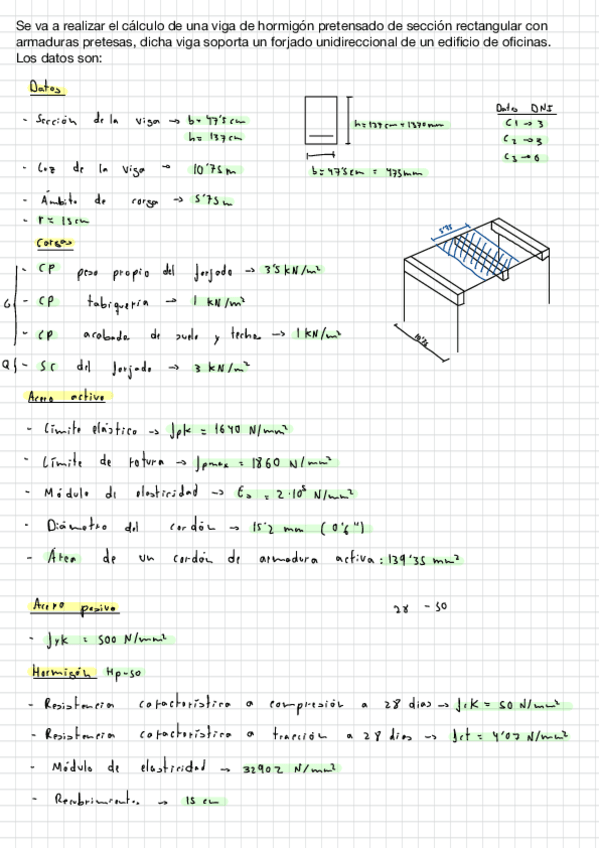 Se va a realizar el cálculo de una viga de hormigón pretensado de sección rectangular con
armaduras pretesas, dicha viga soporta un forjado unidireccional de un edificio de oficinas.
Los datos son:
Datos
- Sección de la viga → b = 47'5 cm
h = 137 cm
h = 137 cm = 1370 mm
b = 47'5 cm = 475 mm
Datos DNI
C1 → 3
C2 → 5
C3 → 0
- Luz de la viga → 10'75 m
- Ámbito de carga → 5'75 m
- r = 15 cm
Cargas
G
- CP peso propio del forjado → 3'5 kN/m²
- CP tabiquería → 1 kN/m²
- CP acabado de suelo y techo → 1 kN/m²
Q
- SC del forjado → 3 kN/m²
5'75
10'75
Acero activo
- Límite elástico → fpk = 1640 N/mm²
- Límite de rotura → fpmax = 1860 N/mm²
- Módulo de elasticidad → Es = 2·10⁵ N/mm²
- Diámetro del cordón → 15'2 mm (0'6")
- Área de un cordón de armadura activa: 139'35 mm²
Acero pasivo
28 - 50
- fyk = 500 N/mm²
Hormigón Hp-50
- Resistencia característica a compresión a 28 días → fck = 50 N/mm²
- Resistencia característica a tracción a 28 días → fct = 4'07 N/mm²
- Módulo de elasticidad → 32902 N/mm²
- Recubrimiento → 15 cm